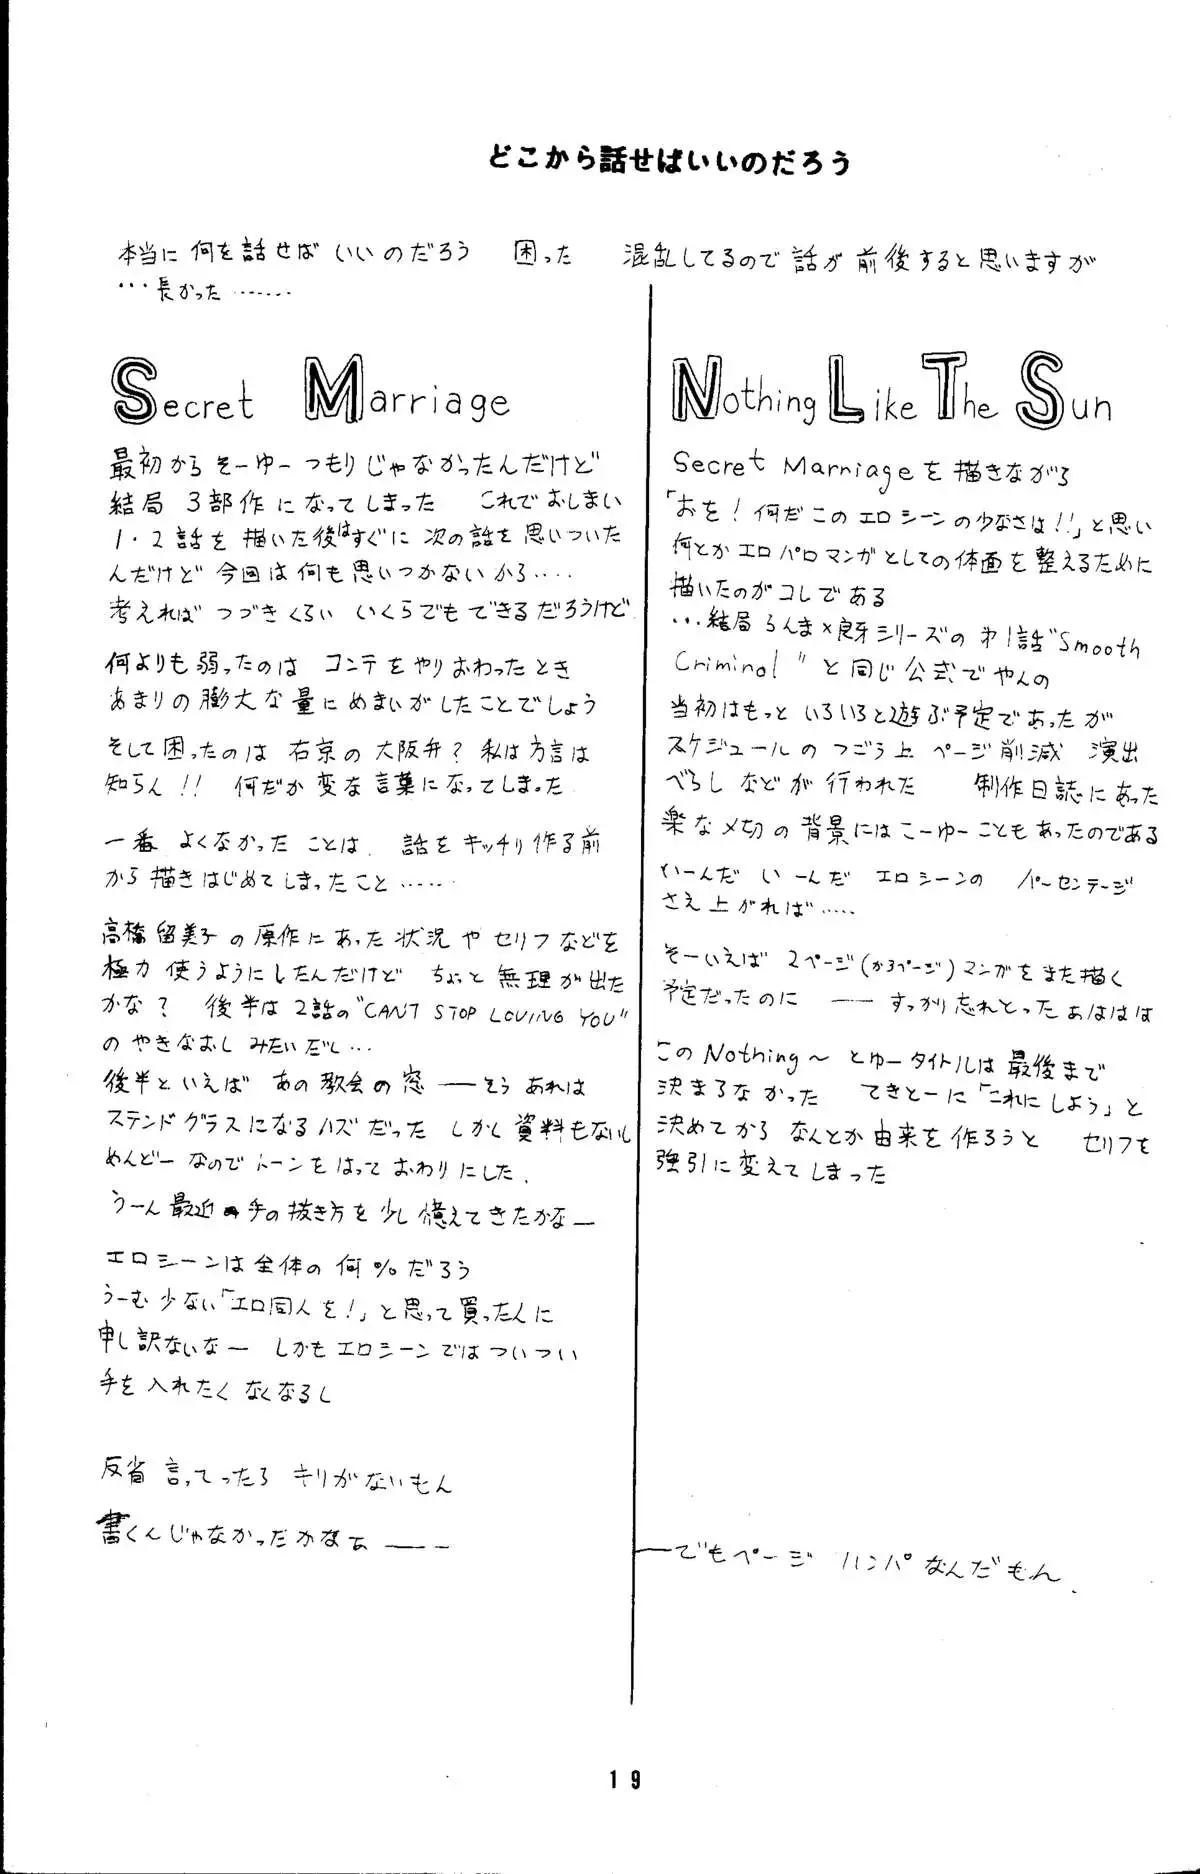 どこから話せばいいのだろう
本当に 何を話せば いいのだろう 困った 混乱してるので 話が 前後すると思いますが
…長かった………
Secret Marriage
最初から そーゆー つもりじゃなかったんだけど
結局 3部作になってしまった これでおしまい
1・2話を 描いた後はすぐに 次の話を 思いついた
んだけど 今回は何も思いつかないから‥‥
考えれば つづきくらい いくらでもできるだろうけど
何よりも弱ったのは コンテをやりおわったとき
あまりの膨大な量にめまいがしたことでしょう
そして困ったのは 右京の大阪弁? 私は方言は
知らん!! 何だか変な言葉になってしまった
一番 よくなかった ことは、話を キッチリ作る前
から描きはじめてしまったこと……
高橋留美子の原作にあった状況や セリフなどを
極力 使うようにしたんだけど ちょっと無理が出た
かな? 後半は2話の"CAN'T STOP LOVING YOU"
のやきなおし みたいだし…
後半といえば あの教会の窓 ――そう あれは
ステンドグラスになるハズだった しかし 資料もないし
めんどーなのでトーンをはっておわりにした.
うーん最近 手の抜き方を 少し憶えてきたかなー
エロシーンは全体の何%だろう
うーむ少ない「エロ同人を!」と思って買った人に
申し訳ないなー しかもエロシーンではついつい
手を入れたくなくなるし
反省 言ってったら キリがないもん
書くんじゃなかったかなぁ ―――
Nothing Like The Sun
Secret Marriageを描きながら
「おを!何だこのエロシーンの少なさは!!」と思い
何とかエロパロマンガとしての体面を整えるために
描いたのがコレである
…結局らんま×良牙シリーズの第1話"Smooth
Criminal"と同じ公式でやんの
当初はもっと いろいろと遊ぶ予定であったが
スケジュールの つごう上 ページ削減 演出
べらし などが 行われた 制作日誌にあった
楽な〆切の背景にはこーゆーこともあったのである
いーんだ いーんだ エロシーンの パーセンテージ
さえ上がれば……
そーいえば 2ページ(から3ページ)マンガをまた描く
予定だったのに ―― すっかり忘れとった あははは
このNothing〜 とゆータイトルは最後まで
決まらなかった てきとーに「これにしよう」と
決めてから なんとか由来を作ろうと セリフを
強引に変えてしまった
―でもページ ハンパなんだもん.
19